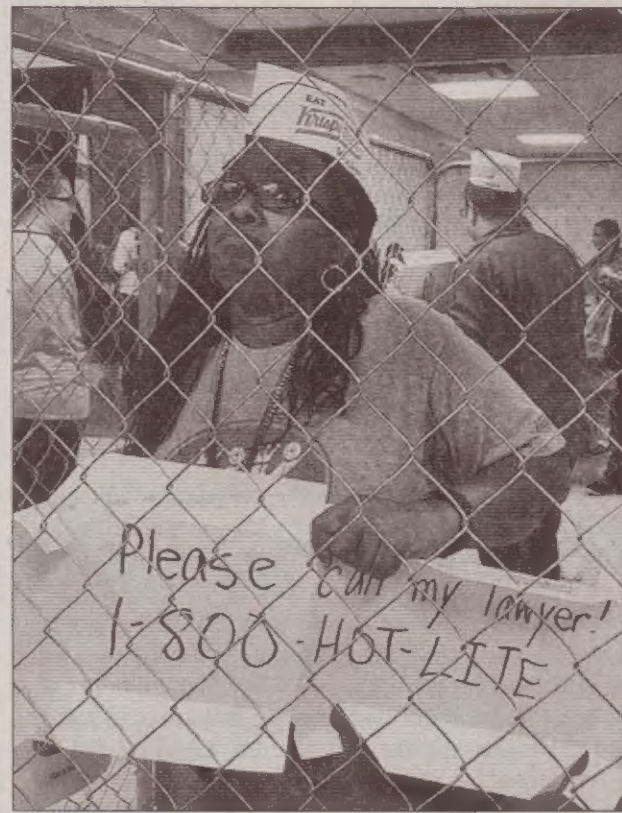 EAT
Please call my lawyer!
1-800-HOT-LITE